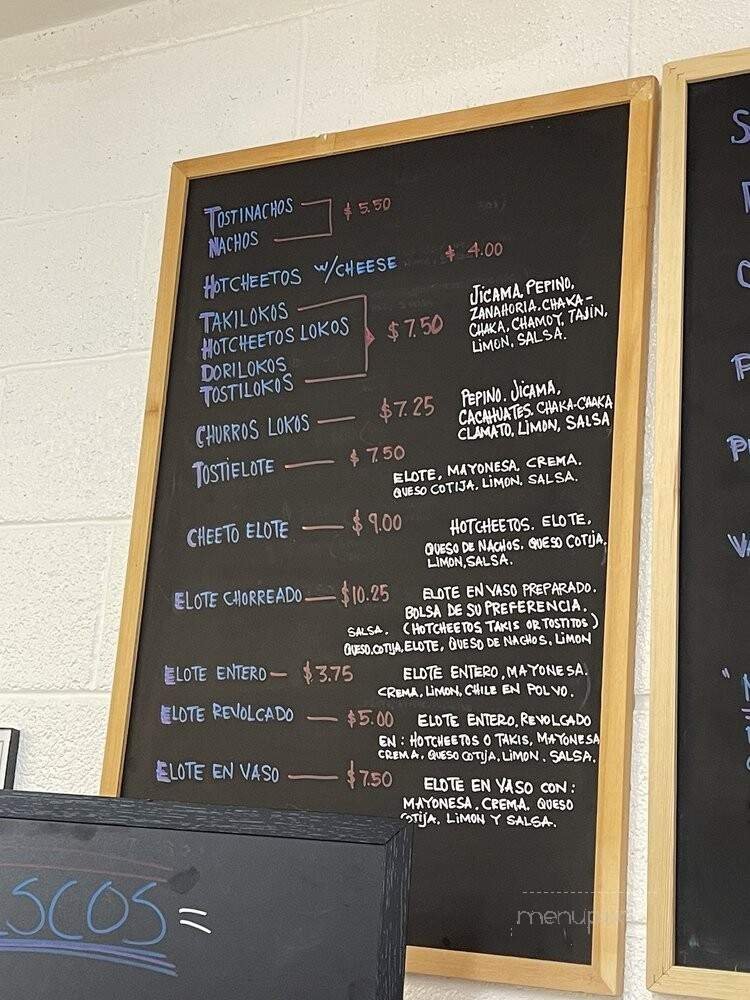 TOSTINACHOS $ 5.50
NACHOS
HOTCHEETOS W/CHEESE $ 4.00
TAKILOKOS
HOTCHEETOS LOKOS $ 7.50
DORILOKOS
TOSTILOKOS
JICAMA, PEPINO,
ZANAHORIA. CHAKA-
CHAKA, CHAMOY, TAJIN,
LIMON, SALSA.
CHURROS LOKOS — $7.25
PEPINO. JICAMA,
CACAHUATES. CHAKA-CHAKA
CLAMATO, LIMON, SALSA
TOSTIELOTE — $ 7.50
ELOTE, MAYONESA, CREMA.
QUESO COTIJA, LIMON, SALSA.
CHEETO ELOTE — $ 9.00
HOTCHEETOS. ELOTE,
QUESO DE NACHOS. QUESO COTIJA,
LIMON, SALSA.
ELOTE CHORREADO — $10.25
ELOTE EN VASO PREPARADO.
BOLSA DE SU PREFERENCIA.
SALSA. (HOTCHEETOS, TAKIS OR TOSTITOS)
QUESO COTIJA, ELOTE, QUESO DE NACHOS, LIMON
ELOTE ENTERO — $3.75
ELOTE ENTERO, MAYONESA.
CREMA, LIMON, CHILE EN POLVO.
ELOTE REVOLCADO — $5.00
ELOTE ENTERO, REVOLCADO
EN: HOTCHEETOS O TAKIS, MAYONESA
CREMA, QUESO COTIJA, LIMON. SALSA.
ELOTE EN VASO — $7.50
ELOTE EN VASO CON:
MAYONESA, CREMA, QUESO
COTIJA, LIMON Y SALSA.